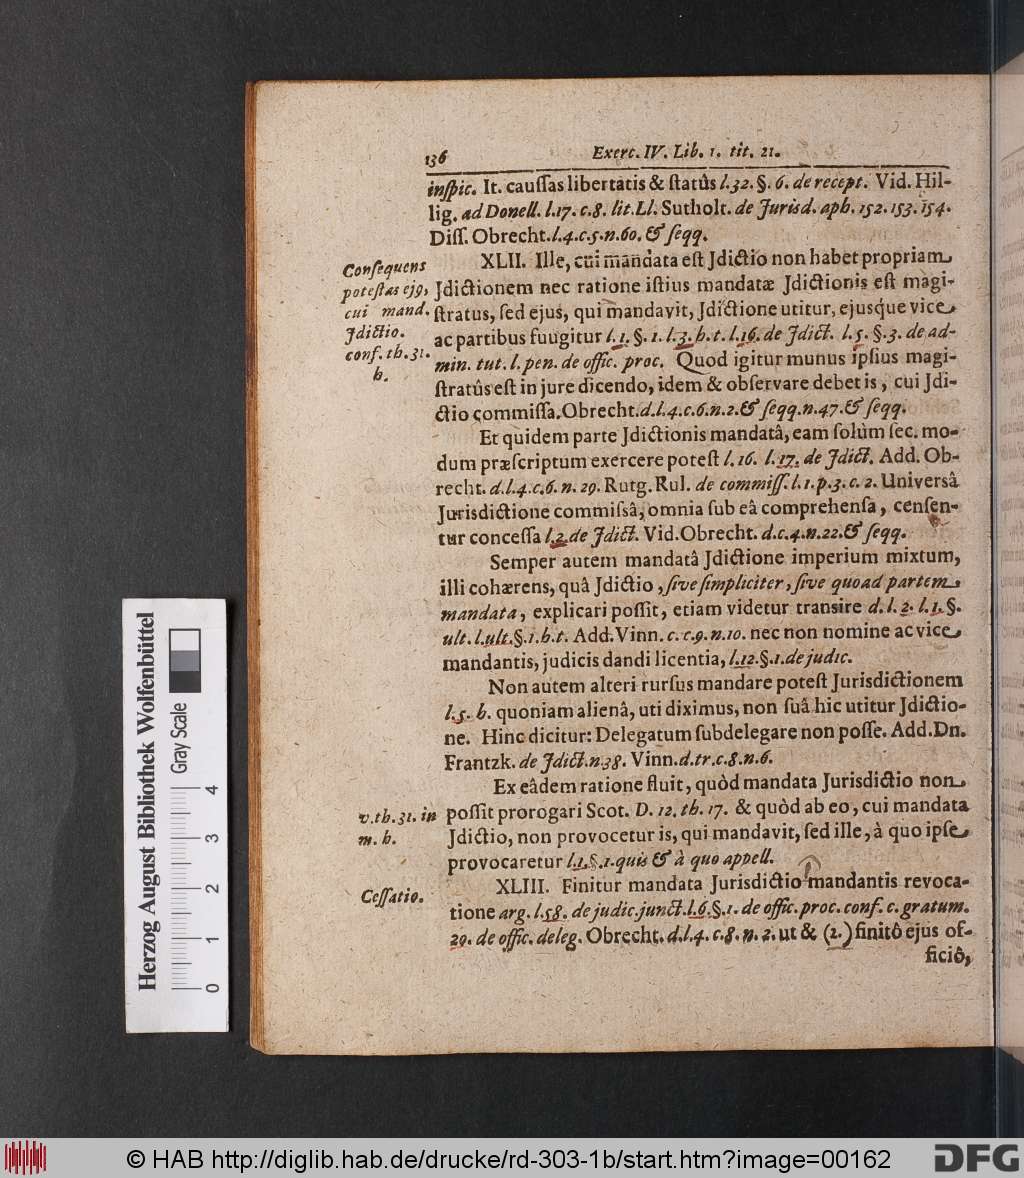 136 Exerc. IV. Lib. 1. tit. 21.
inſpic. It. cauſſas libertatis & ſtatûs l. 32. §. 6. de recept. Vid. Hil-
lig. ad Donell. l. 17. c. 8. lit. Ll. Sutholt. de Jurisd. aph. 152. 153. 154.
Diſſ. Obrecht. l. 4. c. 5. n. 60. & ſeqq.
XLII. Ille, cui mandata eſt Jdictio non habet propriam
Jdictionem nec ratione iſtius mandatæ Jdictionis eſt magi-
ſtratus, ſed ejus, qui mandavit, Jdictione utitur, ejusque vice
ac partibus fuugitur l. 1. §. 1. l. 3. h. t. l. 16. de Jdict. l. 5. §. 3. de ad-
min. tut. l. pen. de offic. proc. Quod igitur munus ipſius magi-
ſtratûs eſt in jure dicendo, idem & obſervare debet is, cui Jdi-
ctio commiſſa. Obrecht. d. l. 4. c. 6. n. 2. & ſeqq. n. 47. & ſeqq.
Conſequens
poteſtas ejꝰ,
cui mand.
Jdictio.
conf. th. 31.
h.
Et quidem parte Jdictionis mandatâ, eam ſolùm ſec. mo-
dum præſcriptum exercere poteſt l. 16. l. 17. de Jdict. Add. Ob-
recht. d. l. 4. c. 6. n. 29. Rutg. Rul. de commiſſ. l. 1. p. 3. c. 2. Universâ
Jurisdictione commiſsâ, omnia ſub eâ comprehenſa, cenſen-
tur conceſſa l. 2. de Jdict. Vid. Obrecht. d. c. 4. n. 22. & ſeqq.
Semper autem mandatâ Jdictione imperium mixtum,
illi cohærens, quâ Jdictio, ſive ſimpliciter, ſive quoad partem
mandata, explicari poſſit, etiam videtur transire d. l. 2. l. 1. §.
ult. l. ult. §. 1. h. t. Add. Vinn. c. c. 9. n. 10. nec non nomine ac vice
mandantis, judicis dandi licentia, l. 12. §. 1. de judic.
Non autem alteri rurſus mandare poteſt Jurisdictionem
l. 5. h. quoniam alienâ, uti diximus, non ſuâ hic utitur Jdictio-
ne. Hinc dicitur: Delegatum ſubdelegare non poſſe. Add. Dn.
Frantzk. de Jdict. n. 38. Vinn. d. tr. c. 8. n. 6.
Ex eâdem ratione fluit, quòd mandata Jurisdictio non
poſſit prorogari Scot. D. 12. th. 17. & quòd ab eo, cui mandata
Jdictio, non provocetur is, qui mandavit, ſed ille, à quo ipſe
provocaretur l. 1. §. 1. quis & à quo appell.
v. th. 31. in
m. h.
XLIII. Finitur mandata Jurisdictio mandantis revoca-
tione arg. l. 58. de judic. junct. l. 6. §. 1. de offic. proc. conf. c. gratum.
29. de offic. deleg. Obrecht. d. l. 4. c. 8. n. 2. ut & (2.) finitô ejus of-
ficiô,
Ceſſatio.
Herzog August Bibliothek Wolfenbüttel
Gray Scale
0 1 2 3 4
© HAB http://diglib.hab.de/drucke/rd-303-1b/start.htm?image=00162
DFG